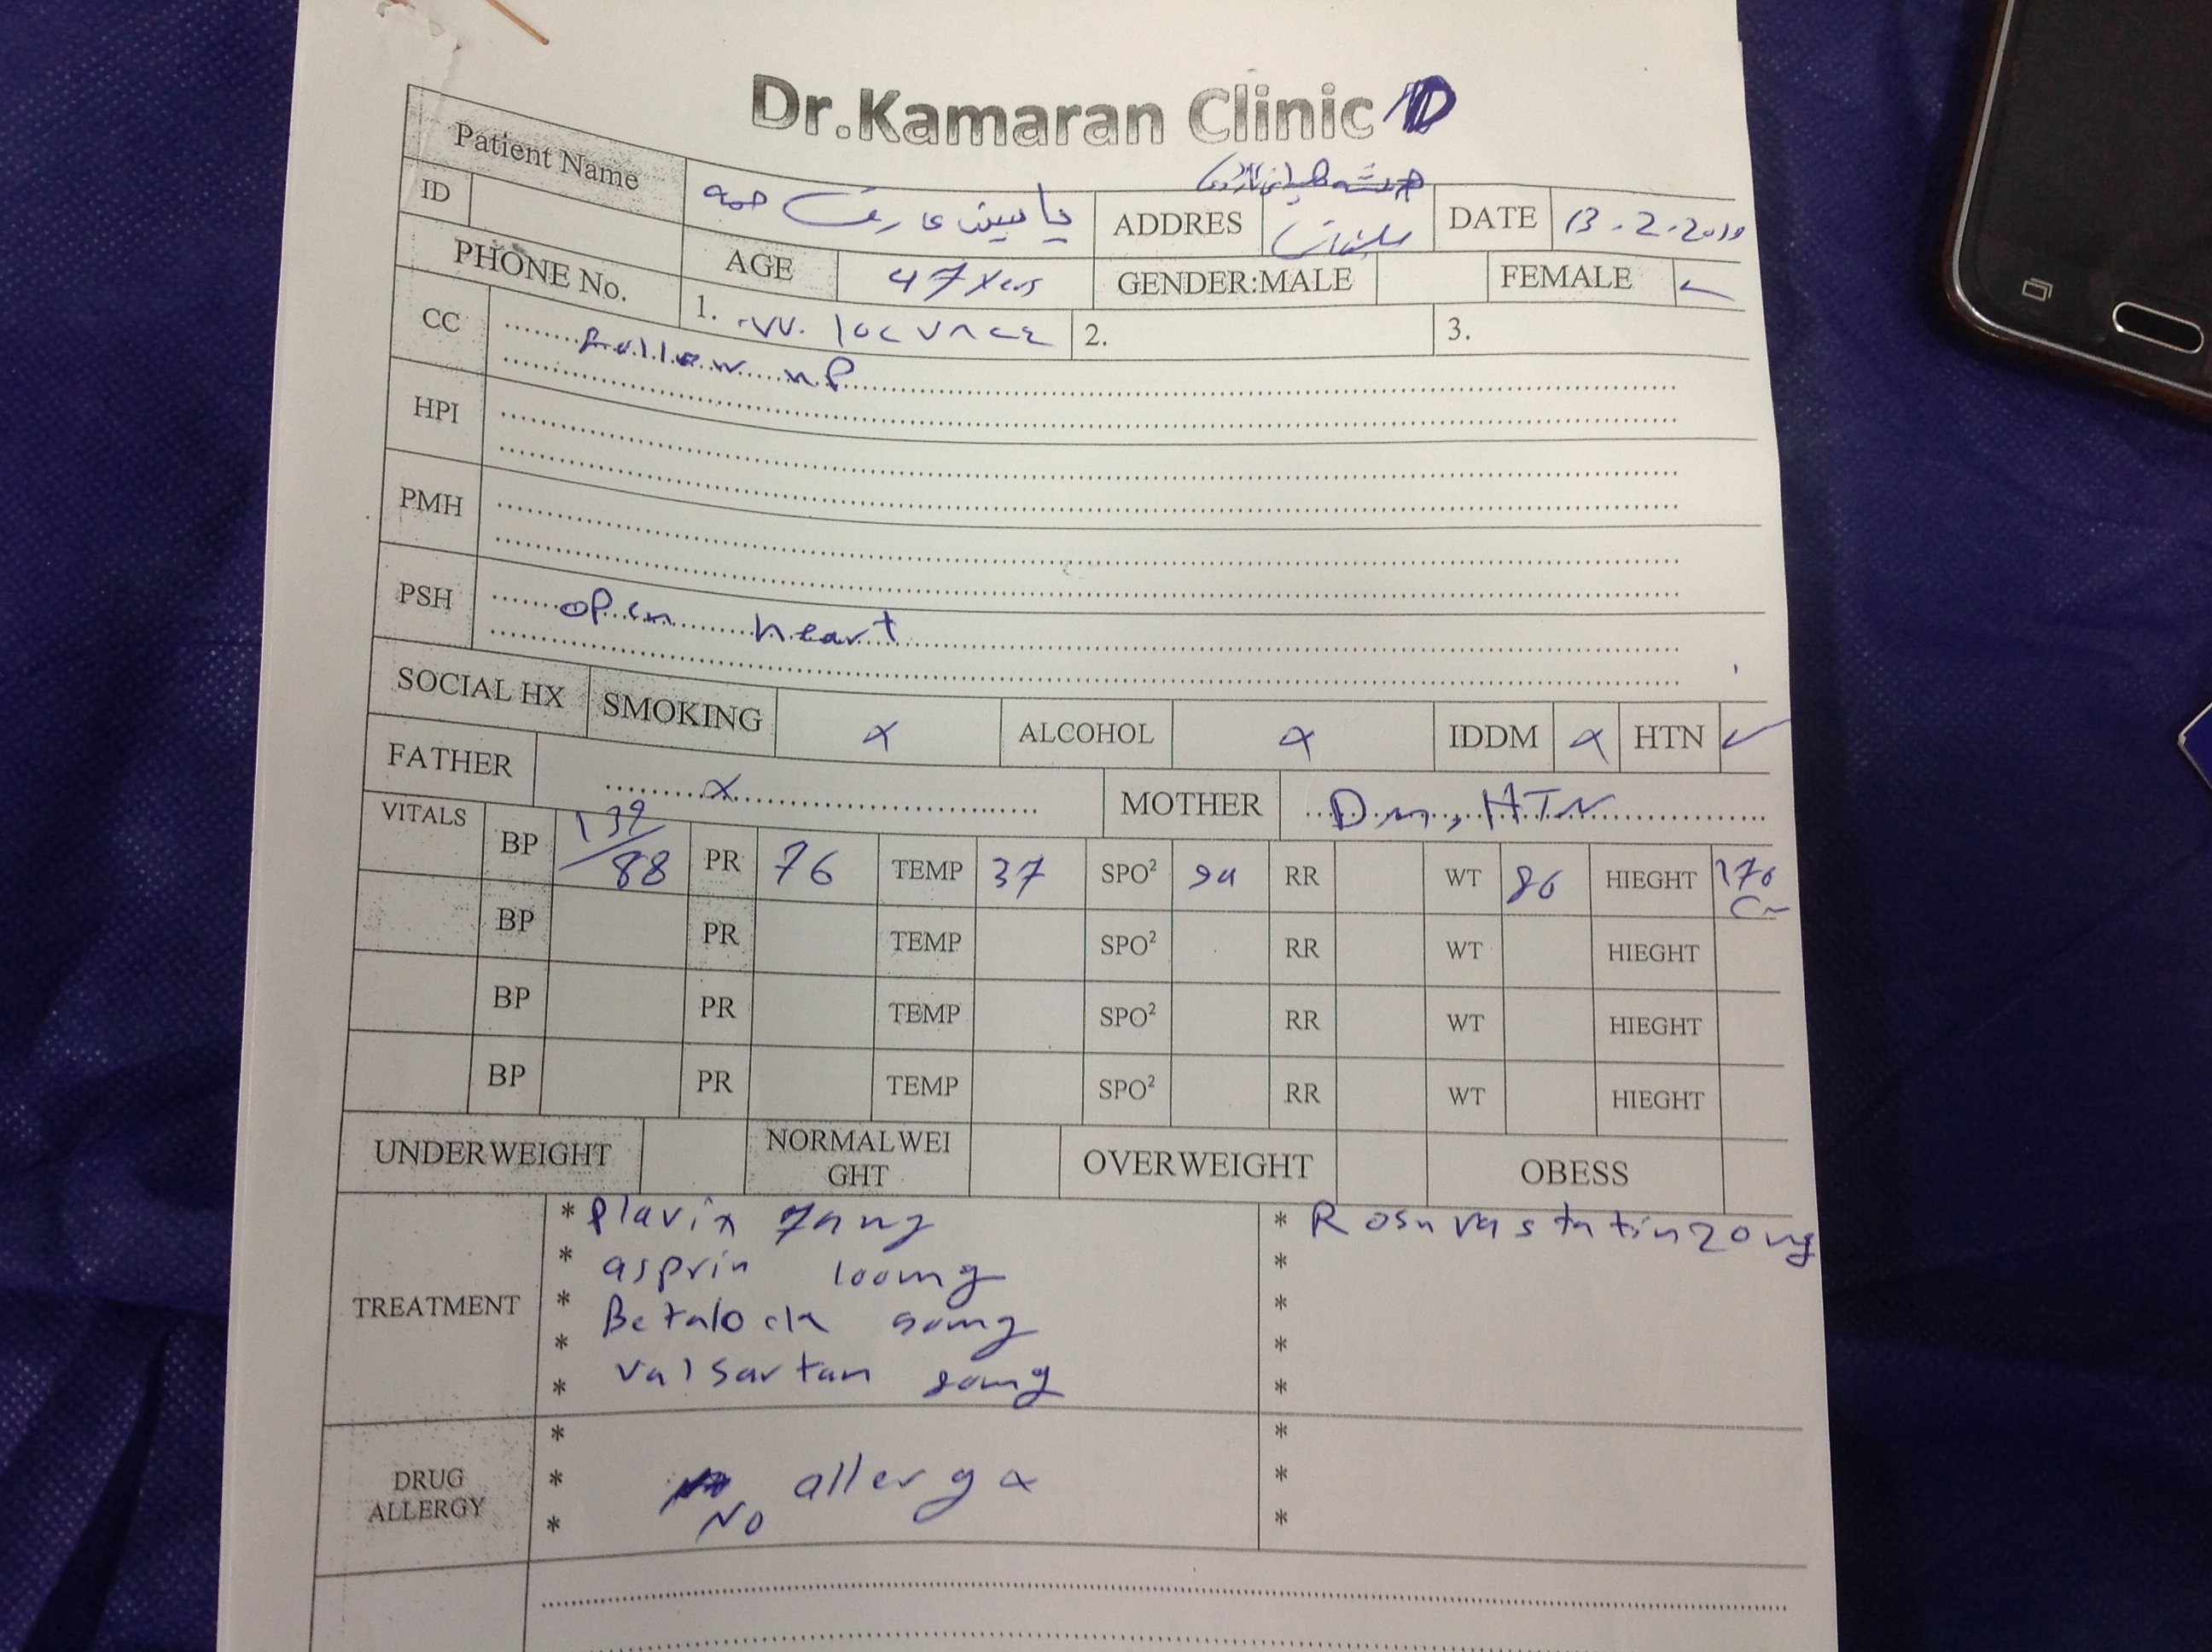 Dr.Kamaran Clinic
Patient Name یاسین عارف حمه ADDRES DATE 13.2.2019
ID AGE 47 Yers GENDER:MALE FEMALE ✓
PHONE No. 1. ٠٧٧٠١٥٤٧٨٤٤ 2. 3.
CC follow up
HPI
PMH
PSH open heart
SOCIAL HX SMOKING x ALCOHOL x IDDM x HTN ✓
FATHER x MOTHER D.m, HTN
VITALS BP 139/88 PR 76 TEMP 37 SPO² 94 RR WT 86 HIEGHT 170 Cm
BP PR TEMP SPO² RR WT HIEGHT
BP PR TEMP SPO² RR WT HIEGHT
BP PR TEMP SPO² RR WT HIEGHT
UNDERWEIGHT NORMALWEI
GHT OVERWEIGHT OBESS
TREATMENT
* Plavix 75mg
* asprin 100mg
* Betalock 50mg
* valsartan 80mg
*
* Rosuvastatin 20mg
*
*
*
*
DRUG
ALLERGY
*
* No allergy x
*
*
*
*